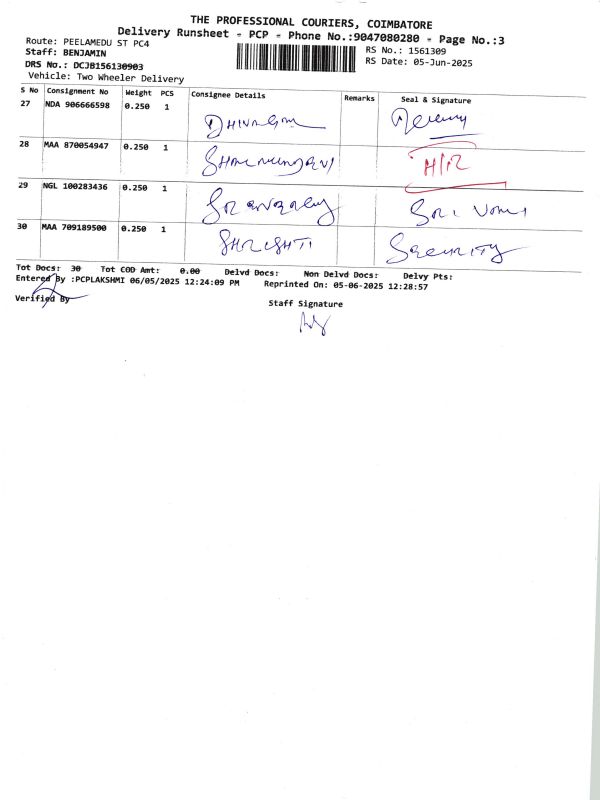 THE PROFESSIONAL COURIERS, COIMBATORE
Delivery Runsheet - PCP - Phone No.:9047080280 - Page No.:3
Route: PEELAMEDU ST PC4 RS No.: 1561309
Staff: BENJAMIN RS Date: 05-Jun-2025
DRS No.: DCJB156130903
Vehicle: Two Wheeler Delivery
S No Consignment No Weight PCS Consignee Details Remarks Seal & Signature
27 NDA 906666598 0.250 1
28 MAA 870054947 0.250 1 H/R
29 NGL 100283436 0.250 1
30 MAA 709189500 0.250 1 SHRISHTI SECURITY
Tot Docs: 30 Tot COD Amt: 0.00 Delvd Docs: Non Delvd Docs: Delvy Pts:
Entered By :PCPLAKSHMI 06/05/2025 12:24:09 PM Reprinted On: 05-06-2025 12:28:57
Verified By
Staff Signature